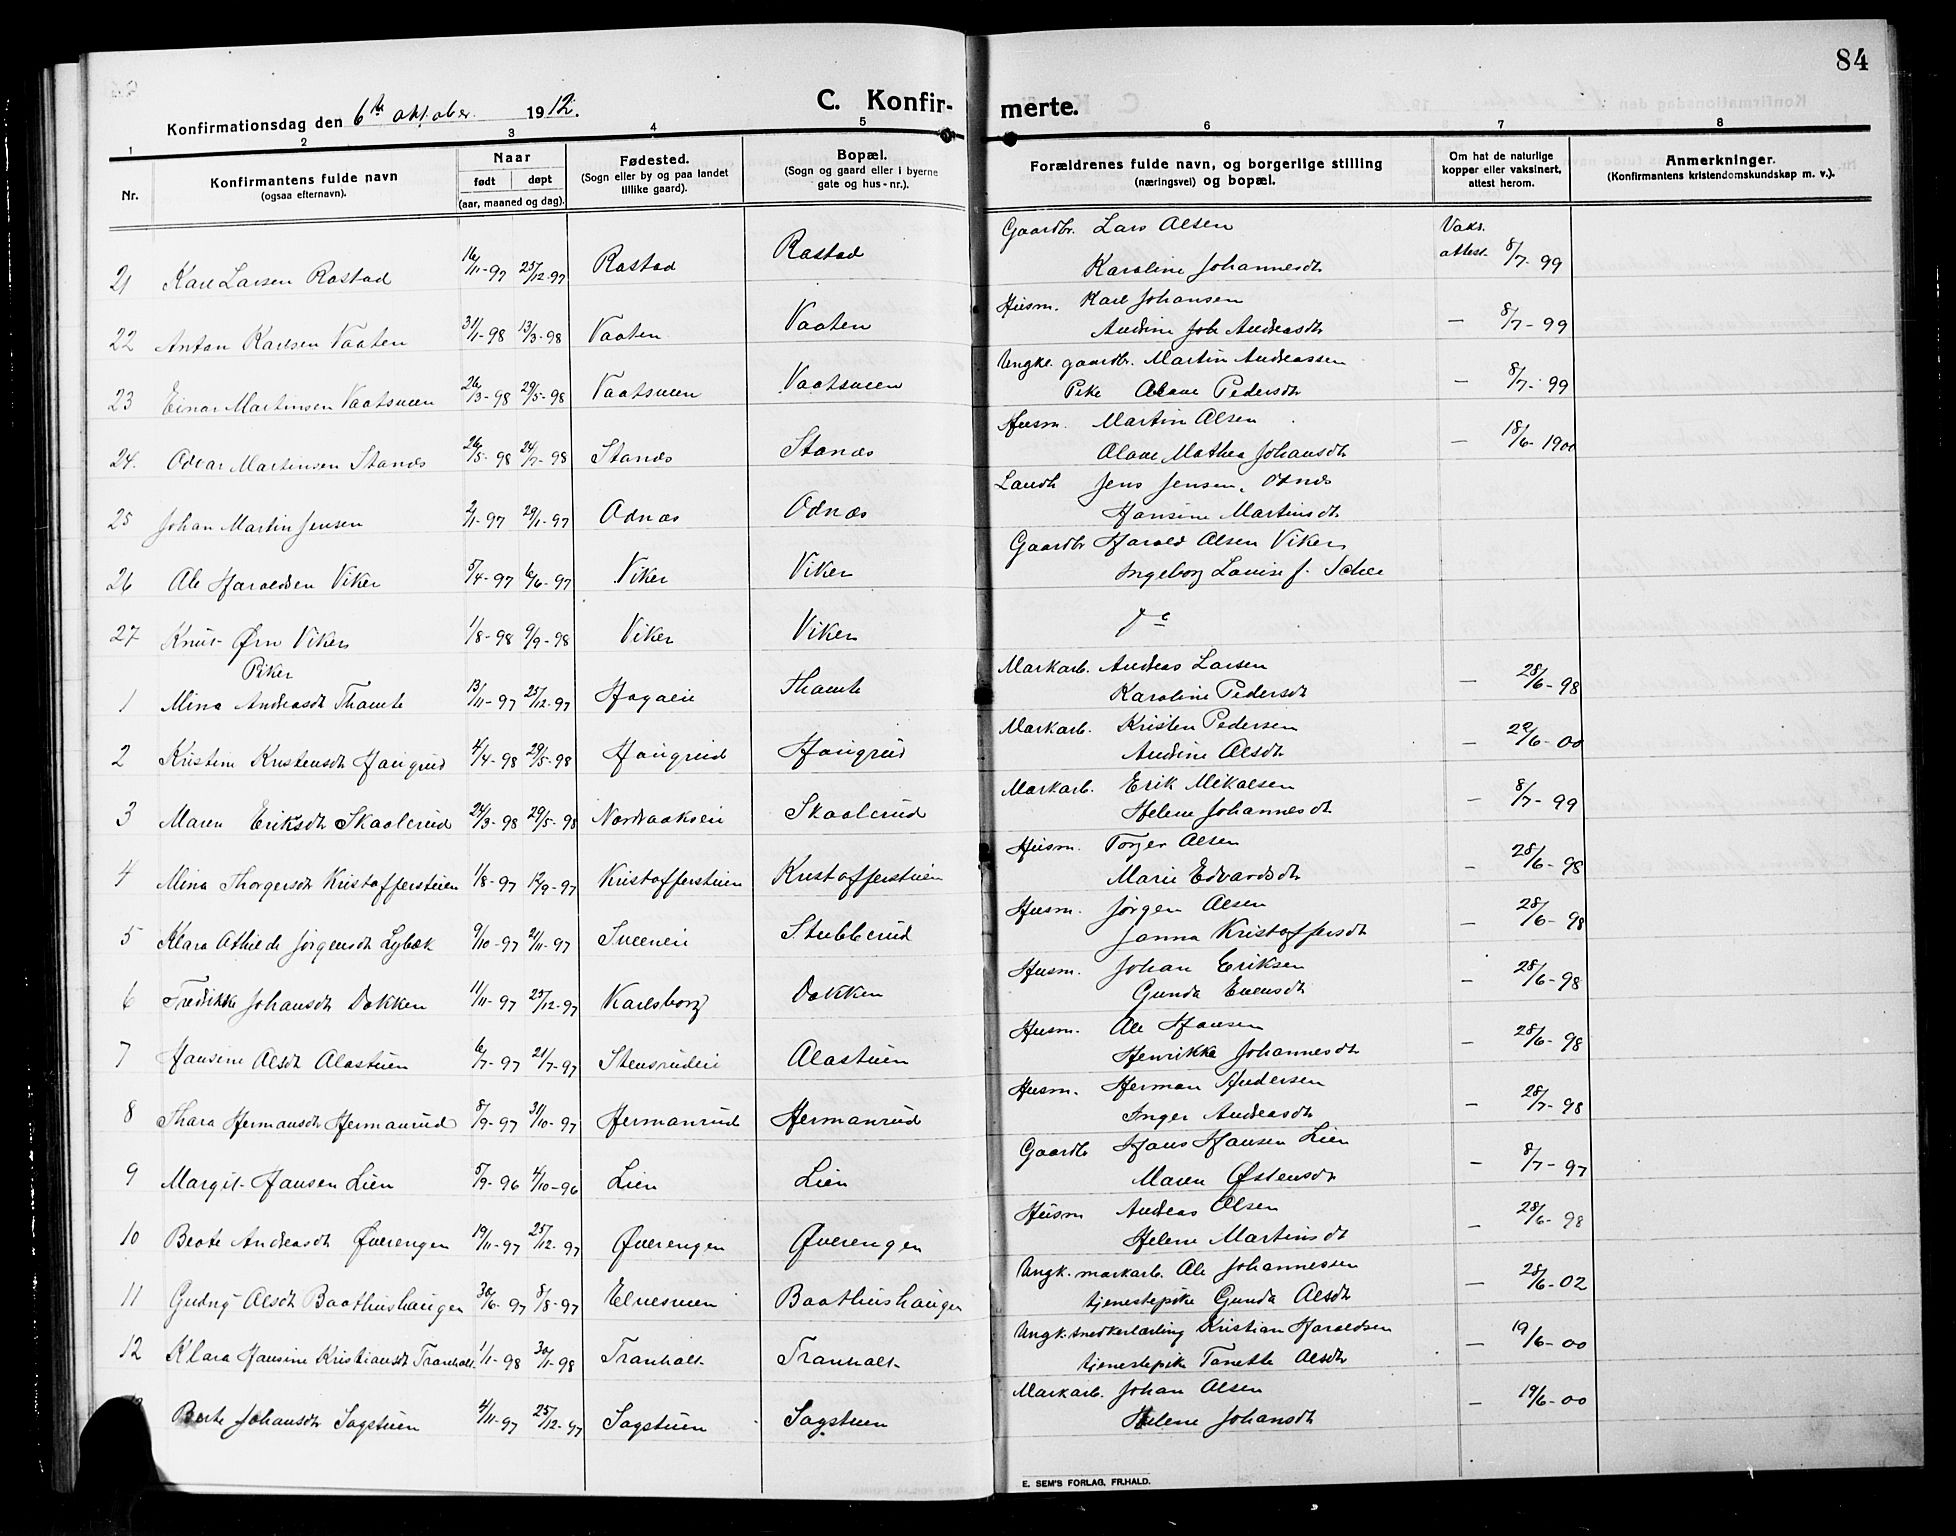 84
Konfirmationsdag den 6te oktober 1912.
C. Konfirmerte.
1 2 3 4 5 6 7 8
Nr.
Konfirmantens fulde navn
(ogsaa efternavn).
Naar
født døpt
(aar, maaned og dag).
Fødested.
(Sogn eller by og paa landet
tillike gaard).
Bopæl.
(Sogn og gaard eller i byerne
gate og hus-nr.).
Forældrenes fulde navn, og borgerlige stilling
(næringsvei) og bopæl.
Om hat de naturlige
kopper eller vaksinert,
attest herom.
Anmerkninger.
(Konfirmantens kristendomskundskap m. v.).
21 Karl Larsen Rastad 16/11-97 25/12-97 Rastad Rastad Gaardbr. Lars Olsen Vaks.
Karoline Johannesdt attest. 8/7-99
22 Anton Karlsen Vaaten 31/1-98 13/3-98 Vaaten Vaaten Husm. Karl Johansen
Audine Joh Andreasdt — 8/7-99
23 Einar Martinsen Vaatsveen 26/3-98 29/5-98 Vaatsveen Vaatsveen Ungk. gaardbr. Martin Andreassen
Pike Olave Pedersdt — 8/7-99
24. Oddvar Martinsen Stanæs 26/5-98 24/7-98 Stanæs Stanæs Husm. Martin Olsen
Olave Mathea Johansdt — 18/6-1900
25 Johan Martin Jensen 2/1-97 29/1-97 Odnæs Odnæs Landh. Jens Jensen, Odnæs
Hansine Martinsdt
26 Ole Haraldsen Viker 5/4-97 6/6-97 Viker Viker Gaardbr Harald Olsen Viker
Ingeborg Louise f.
27 Knut Ørn Viker 1/8-98 9/9-98 Viker Viker
Piker
1 Mina Andreasdt Thomte 13/11-97 25/12-97 Hagaeie Thomte Markarb. Andreas Larsen
Karoline Pedersdt — 28/6-98
2 Kristine Kristensdt Haugrud 4/4-98 29/5-98 Haugrud Haugrud Markarb. Kristen Pedersen
Andine Olsdt — 22/6-00
3 Maren Eriksdt Skaalerud 24/3-98 29/5-98 Nordraakeie Skaalerud Markarb. Erik Mikalsen
Helene Johannesdt — 8/7-99
4 Mina Thorgersdt Kristofferstuen 1/8-97 12/9-97 Kristofferstuen Kristofferstuen Husm. Torger Olsen
Marie Edvardsdt — 28/6-98
5 Klara Othilde Jørgensdt Lybæk 9/10-97 21/11-97 Sveeneie Stubberud Husm. Jørgen Olsen
Janna Kristoffersdt — 28/6-98
6 Fredrikke Johansdt Dokken 11/11-97 25/12-97 Karlsborg Dokken Husm. Johan Eriksen
Gunda Evensdt — 28/6-98
7 Hansine Olsdt Olastuen 6/7-97 21/7-97 Stensrudeie Olastuen Husm. Ole Hansen
Henrikke Johannesdt — 28/6-98
8 Thara Hermansdt Hermanrud 8/9-97 31/10-97 Hermanrud Hermanrud Husm. Herman Andersen
Inger Andreasdt — 28/7-98
9 Margit Hansen Lien 5/9-96 4/10-96 Lien Lien Gaardb Hans Hansen Lien
Maren Østensdt — 8/7-97
10 Beate Andreasdt Øverengen 19/11-97 25/12-97 Øverengen Øverengen Husm Andreas Olsen
Helene Martinsdt — 28/6-98
11 Gudny Olsdt Baathushaugen 30/6-97 8/8-97 Elvesveen Baathushaugen Ungk. markarb. Ole Johannessen
tjenestepike Gunda Olsdt — 28/6-02
12 Klara Hansine Kristiansdt Tranholt 1/1-98 30/1-98 Tranholt Tranholt Ungk. snedkerlærling Kristian Haraldsen
tjenestepike Tanette Olsdt — 19/6-00
Berte Johansdt Sagstuen 4/11-97 25/12-97 Sagstuen Sagstuen Markarb. Johan Olsen
Helene Johansdt — 19/6-00
E. SEM'S FORLAG, FR.HALD.